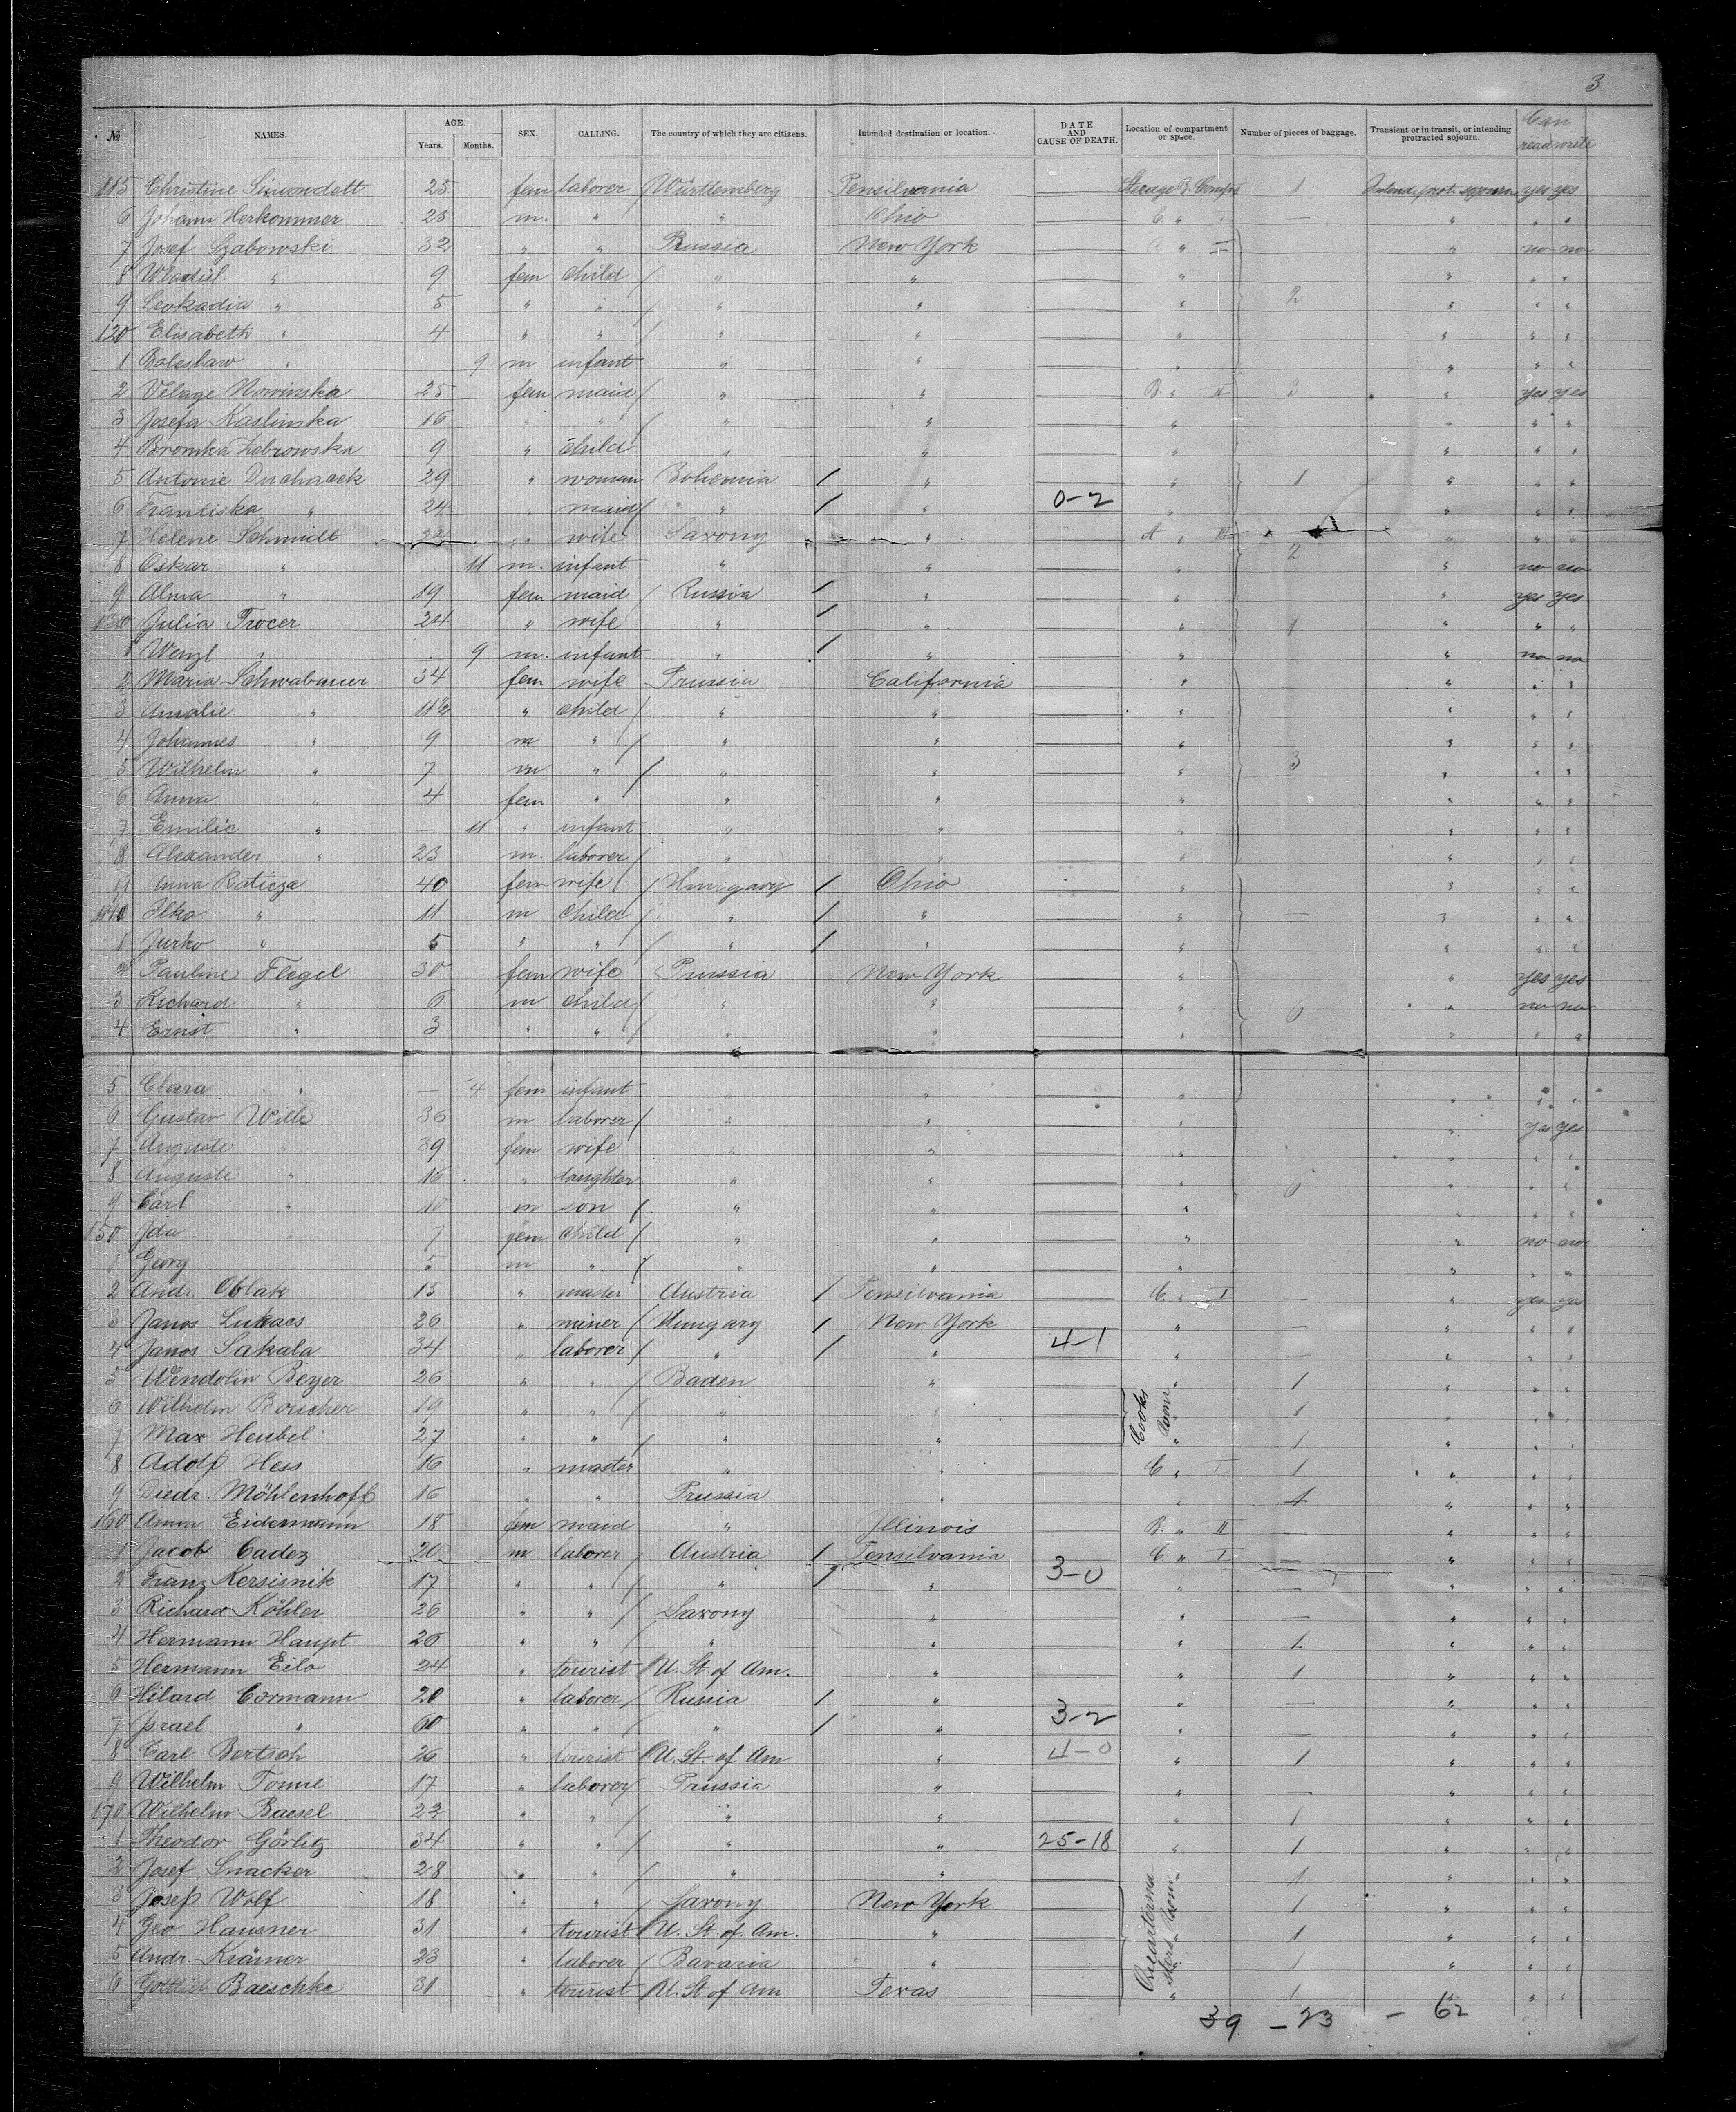 3
№ NAMES. AGE. Years. Months. SEX. CALLING. The country of which they are citizens. Intended destination or location. DATE AND CAUSE OF DEATH. Location of compartment or space. Number of pieces of baggage. Transient or in transit, or intending protracted sojourn. Can read write
115 Christine 25 fem laborer Württemberg Pensilvania — Steerage B. Comp 1 Intend. prot. sojourn yes yes
6 Johann Herkommer 23 m. " " Ohio — C. " I — " " "
7 Josef Szabowski 32 " " Russia New York — A " II " no no
8 Wladisl " 9 fem child " " — " " " "
9 Leokadia " 5 " " " " — " 2 " " "
120 Elisabeth " 4 " " " " — " " " "
1 Boleslaw " 9 m infant " " — " " " "
2 Nowinska 25 fem maid " " — B. " II 3 " yes yes
3 Josefa Kaslinska 16 " " " " — " " " "
4 Bromka Zebrowska 9 " child " " — " " " "
5 Antonie Duchacek 29 " woman Bohemia / " — " 1 " " "
6 Frantiska " 24 " maid " / " 0-2 " " " "
7 Helene Schmidt 22 " wife Saxony " A " III " " "
8 Oskar " 11 m. infant " " — " 2 " no no
9 Alma " 19 fem maid Russia / " — " " yes yes
130 Julia Trocer 24 " wife " / " — " 1 " " "
1 Wenzl " 9 m. infant " / " — " " no no
2 Maria Schwabauer 34 fem wife Prussia California — " " " "
3 Amalie " 11½ " child " " — " " " "
4 Johannes " 9 m " " " — " " " "
5 Wilhelm " 7 m " " " — " 3 " " "
6 Anna " 4 fem " " " — " " " "
7 Emilie " — 11 " infant " " — " " " "
8 Alexander " 23 m. laborer " " — " " " "
9 Anna Raticza 40 fem wife Hungary / Ohio — " " " "
140 Ilko " 11 m child " / " — " — " " "
1 Jurko " 5 " " " / " — " " " "
2 Pauline Flegel 30 fem wife Prussia New York — " " yes yes
3 Richard " 6 m child " " — " 6 " no no
4 Ernst " 3 " " " " — " " " "
5 Clara " — 4 fem infant " " — " " " "
6 Gustav Wilk 36 m laborer " " — " " yes yes
7 Auguste " 39 fem wife " " — " " " "
8 Auguste " 16 " daughter " " — " 6 " " "
9 Carl " 10 m son " " — " " " "
150 Ida " 7 fem child " " — " " no no
1 Georg 5 m " " " — " " " "
2 Andr. Oblak 15 " master Austria / Pensilvania — C. " I — " yes yes
3 Janos Lukacs 26 " miner Hungary / New York — " — " " "
4 Janos Sakala 34 " laborer " / " 4-1 " — " " "
5 Wendolin Beyer 26 " " Baden " — " 1 " " "
6 Wilhelm Boucher 19 " " " " — Cooks Room 1 " " "
7 Max Heubel 27 " " " " — " 1 " " "
8 Adolf Hess 16 " master " " — C. " I 1 " " "
9 Diedr. Möhlenhoff 16 " " Prussia " — " 4 " " "
160 Anna Eidermann 18 fem maid " Illinois — B. " II — " " "
1 Jacob Cadez 20 m laborer Austria / Pensilvania — C " I — " " "
2 Franz Kersisnik 17 " " " / " 3-0 " — " " "
3 Richard Köhler 26 " " Saxony " — " — " " "
4 Hermann Haupt 26 " " " " — " 1 " " "
5 Hermann Eilo 24 " tourist U. St of Am. " — " 1 " " "
6 Hilard Cormann 20 " laborer Russia / " — " — " " "
7 Israel " 60 " " " / " 3-2 " — " " "
8 Carl Bertsch 26 " tourist U. St. of Am " 4-0 " 1 " " "
9 Wilhelm Tonne 17 " laborer Prussia " — " — " " "
170 Wilhelm Baesel 22 " " " " — " 1 " " "
1 Theodor Görlitz 34 " " " " 25-18 " 1 " " "
2 Josef Snacker 28 " " " " — " 1 " " "
3 Josef Wolf 18 " " Saxony New York — " 1 " " "
4 Geo Hausner 31 " tourist U. St. of. Am. " — Quartermasters Room 1 " " "
5 Andr. Krämer 23 " laborer Bavaria " — " 1 " " "
6 Gottlieb Baeschke 31 " tourist U. St of Am Texas — " 1 " " "
39 - 23 - 62